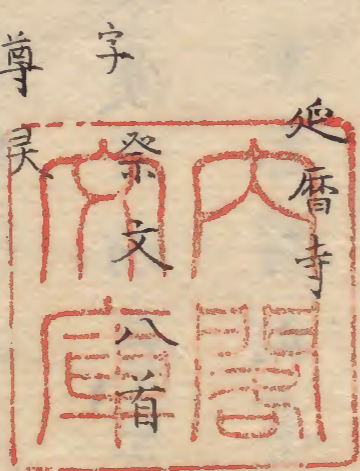 延暦寺
祭文八首
字
尊灵
内閣
文庫